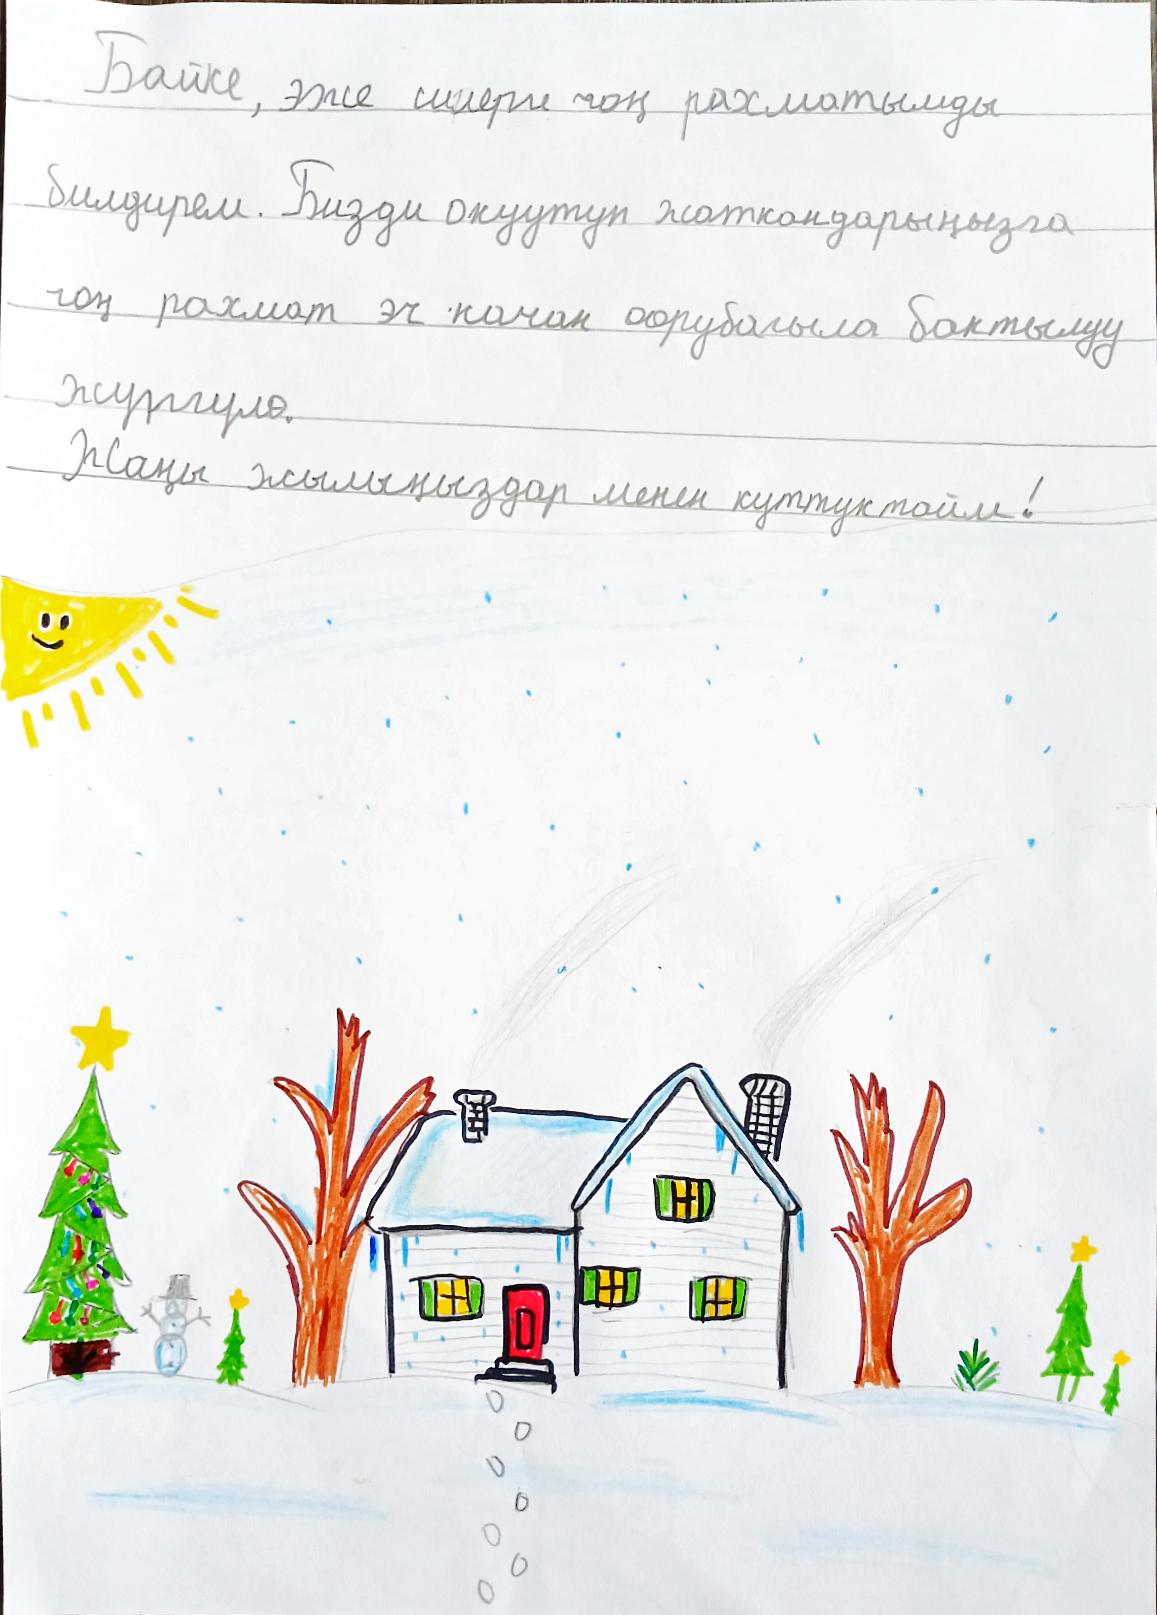 Байке, эже силерге чоң рахматымды
билдирем. Бизди окуутуп жаткандарыңызга
чоң рахмат эч качан оорубагыла бактылуу
жургуло.
Жаңы жылыңыздар менен куттуктайм!